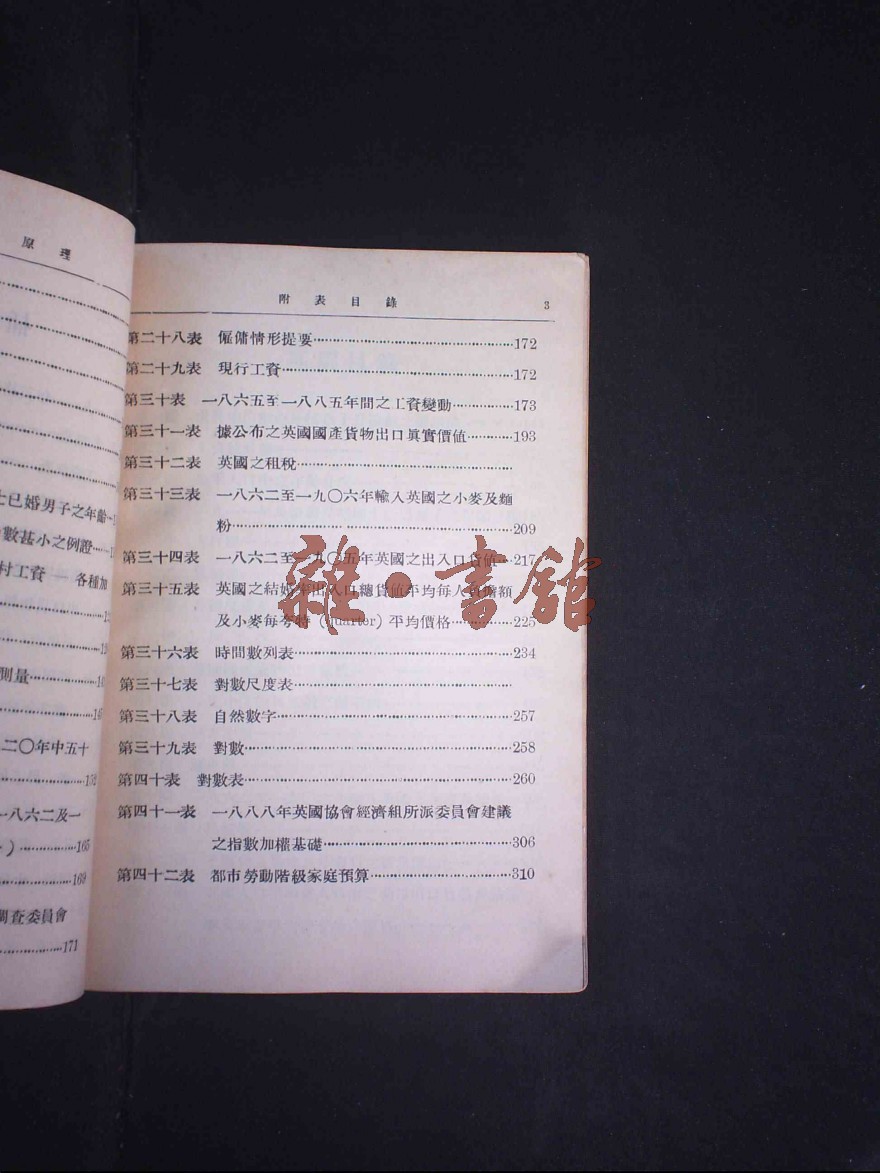 原理
士已婚男子之年齡
數甚小之例證
村工資 — 各種加
測量
二〇年中五十
一八六二及一
)……165
……169
調查委員會
……171
附表目錄 3
第二十八表 僱傭情形提要……172
第二十九表 現行工資……172
第三十表 一八六五至一八八五年間之工資變動……173
第三十一表 據公布之英國國產貨物出口眞實價值……193
第三十二表 英國之租稅……
第三十三表 一八六二至一九〇六年輸入英國之小麥及麵
粉……209
第三十四表 一八六二至一九〇五年英國之出入口貨值……217
第三十五表 英國之結婚率出入口總貨值平均每人負擔額
及小麥每夸特 (quarter) 平均價格……225
第三十六表 時間數列表……234
第三十七表 對數尺度表……
第三十八表 自然數字……257
第三十九表 對數……258
第四十表 對數表……260
第四十一表 一八八八年英國協會經濟組所派委員會建議
之指數加權基礎……306
第四十二表 都市勞動階級家庭預算……310
雜·書館